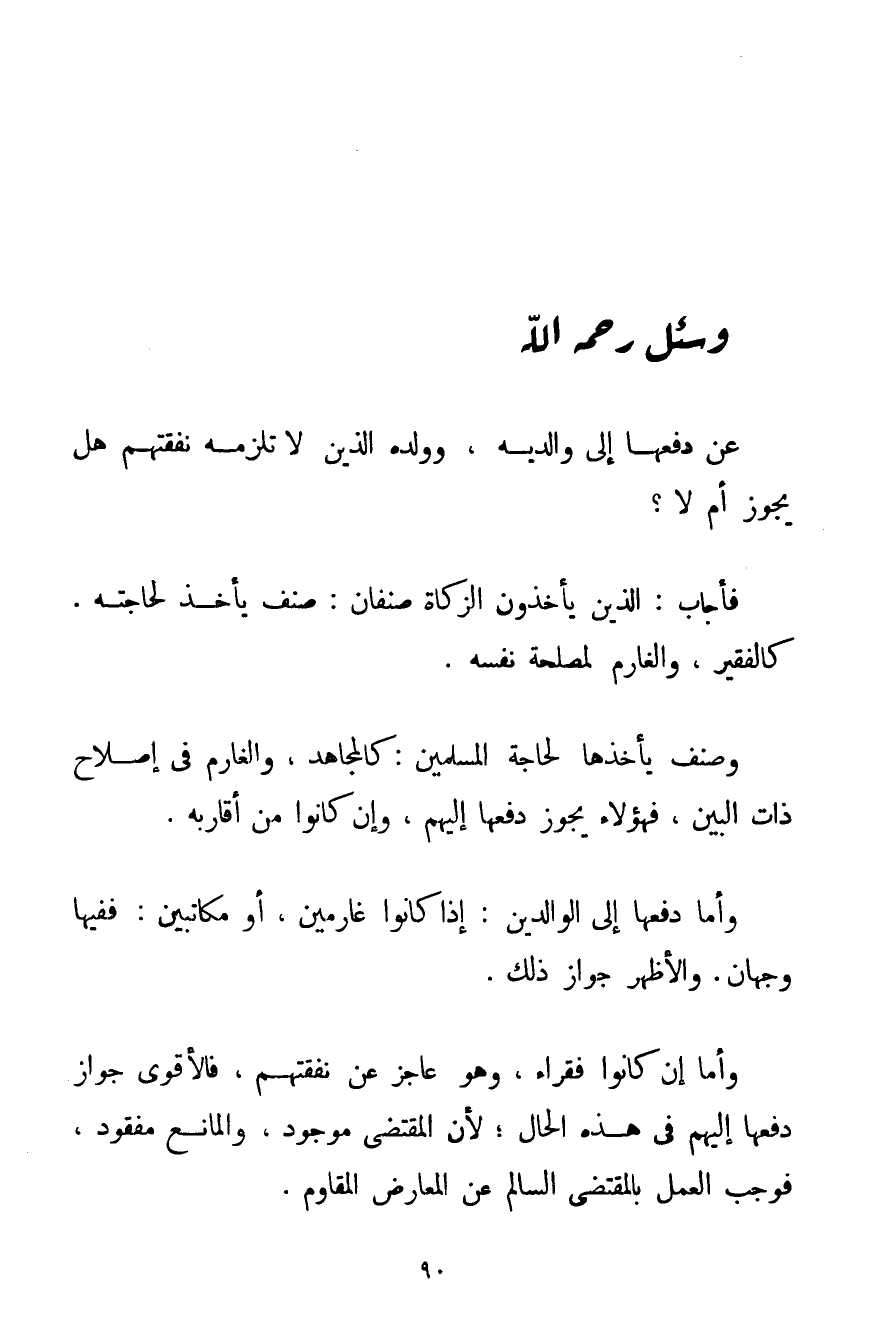 وسئل رحمه اللّه
عن دفعها إلى والديه ، وولده الذين لا تلزمه نفقتهم هل
يجوز أم لا ؟
فأجاب : الذين يأخذون الزكاة صنفان : صنف يأخذ لحاجته .
كالفقير ، والغارم لمصلحة نفسه .
وصنف يأخذها لحاجة المسلمين : كالمجاهد ، والغارم فى إصلاح
ذات البين ، فهؤلاء يجوز دفعها إليهم ، وإن كانوا من أقاربه .
وأما دفعها إلى الوالدين : إذا كانوا غارمين ، أو مكاتبين : ففيها
وجهان . والأظهر جواز ذلك .
وأما إن كانوا فقراء ، وهو عاجز عن نفقتهم ، فالأقوى جواز
دفعها إليهم فى هذه الحال ؛ لأن المقتضى موجود ، والمانع مفقود ،
فوجب العمل بالمقتضى السالم عن المعارض المقاوم .
٩٠